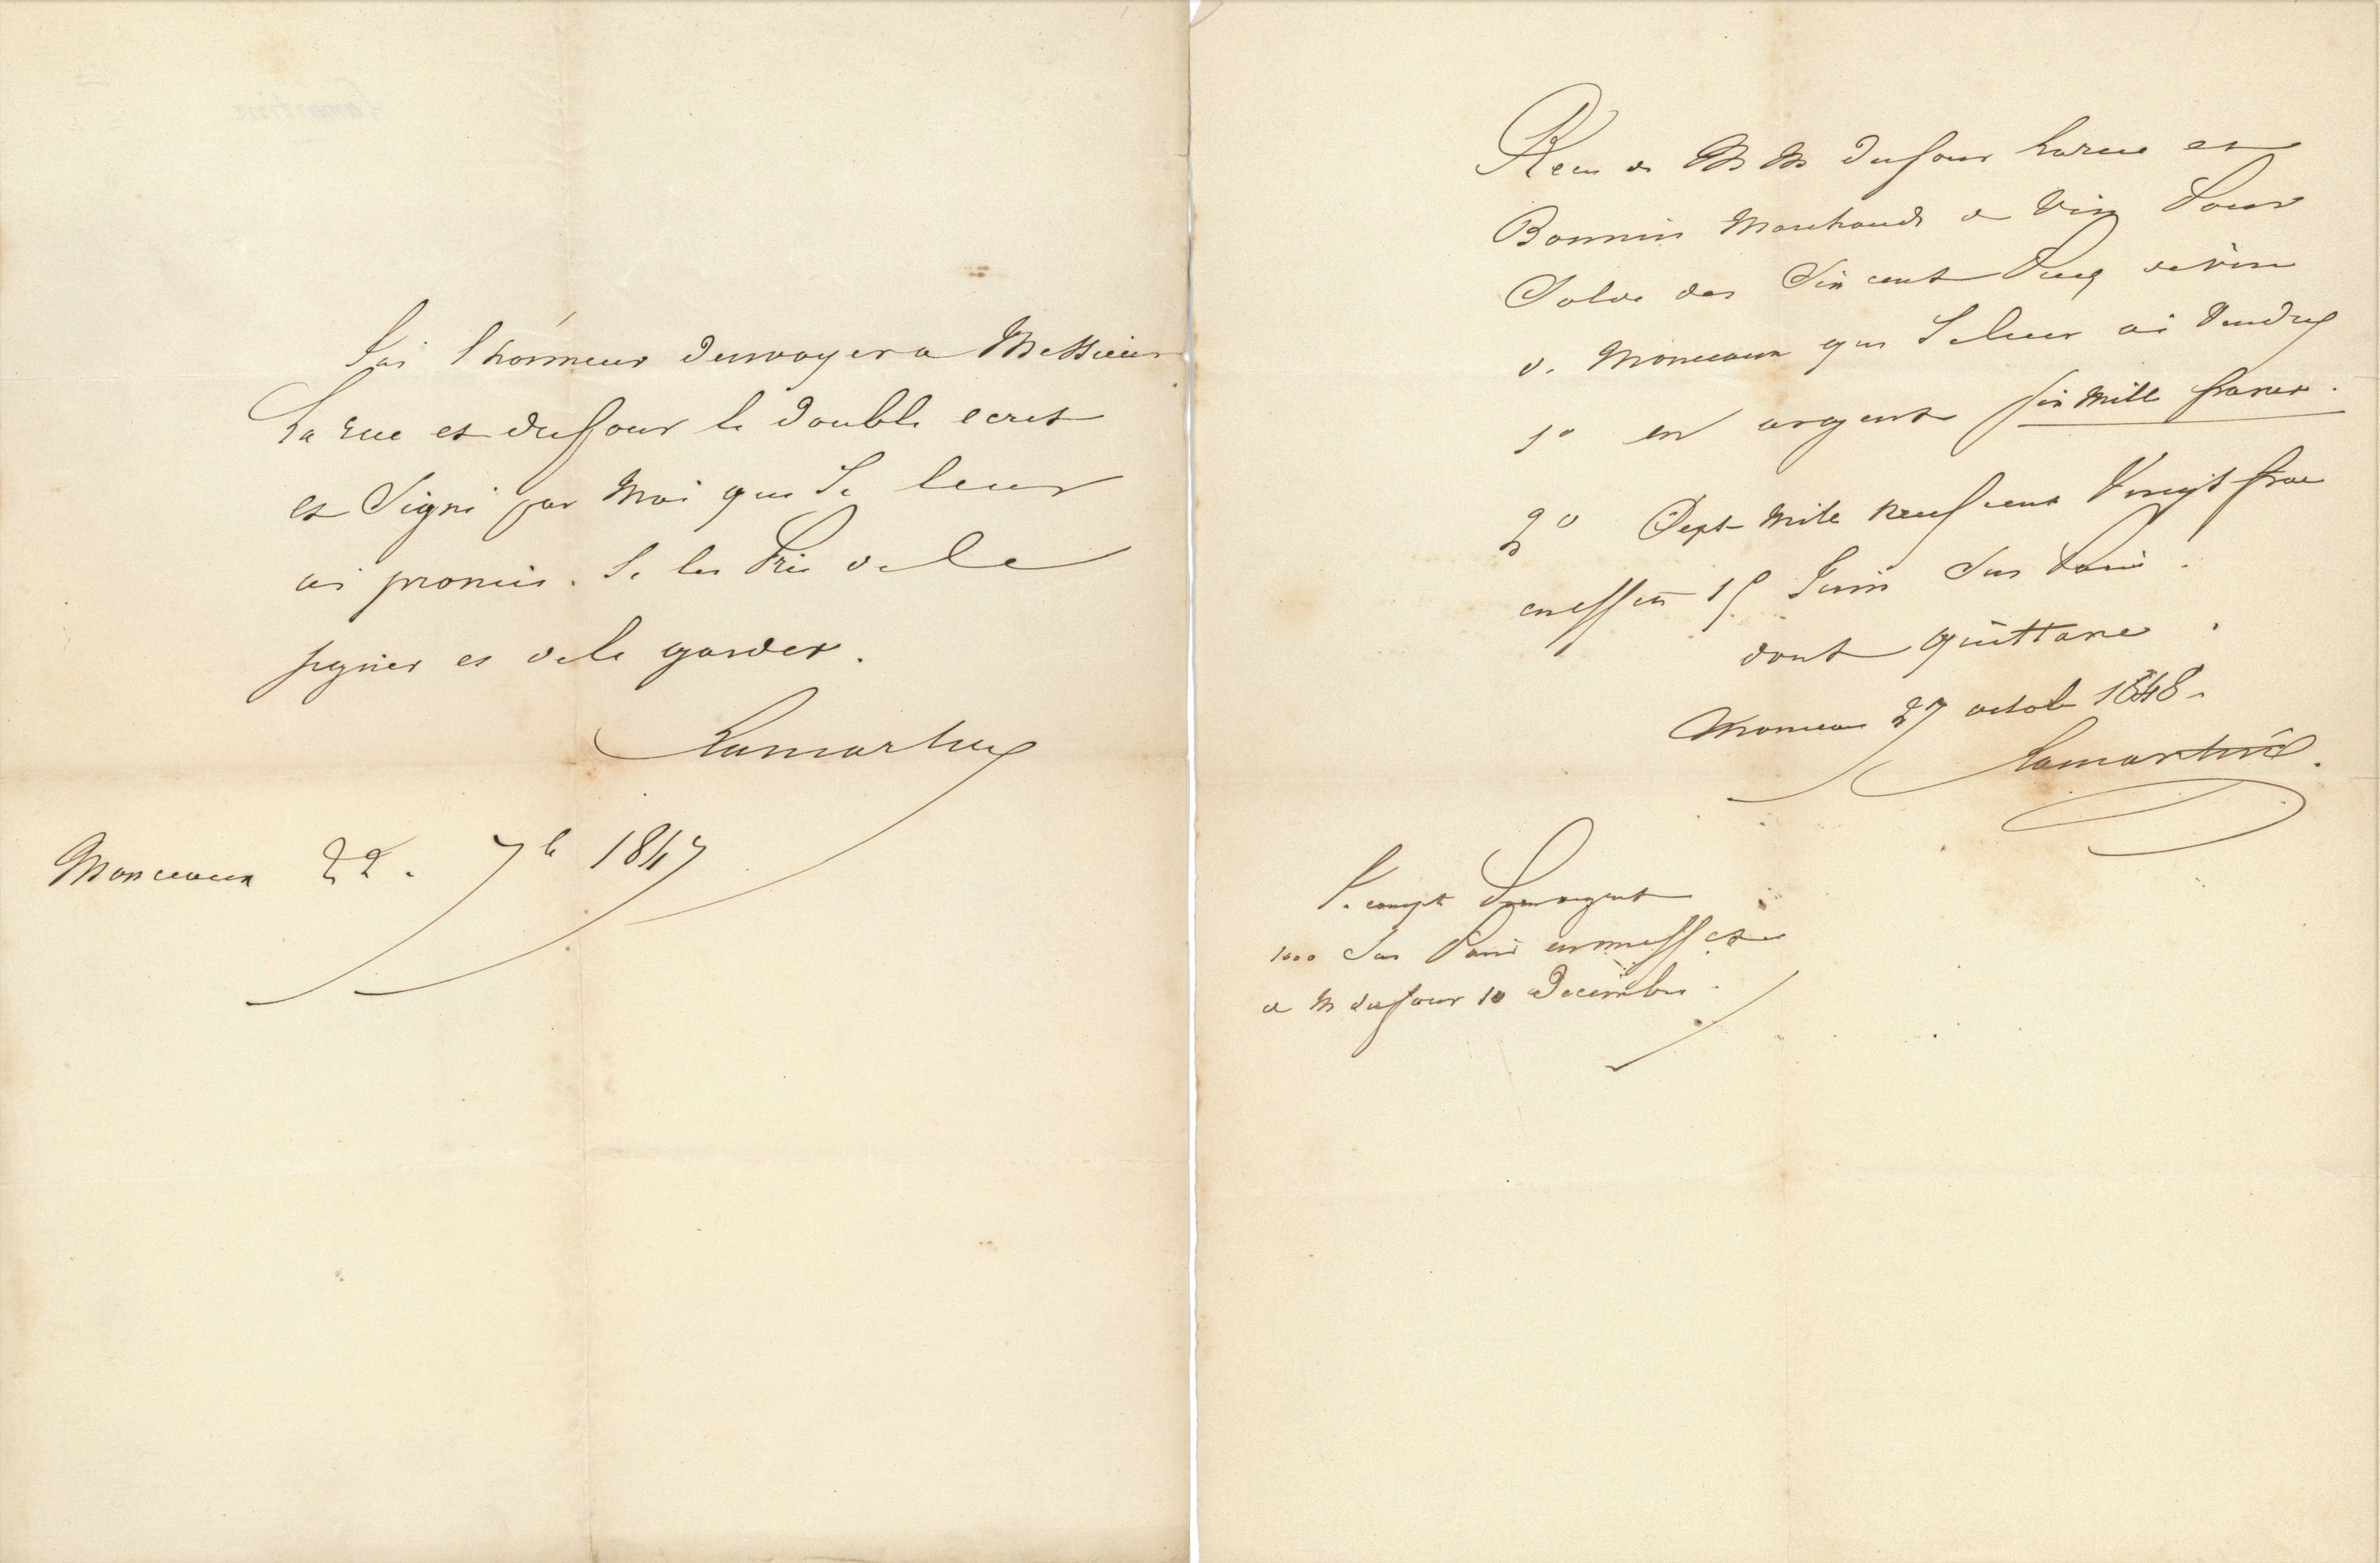 J'ai l'honneur d'envoyer a Messieurs
La rue et dufour le double ecrit
et Signé par Moi que Je leur
ai promis. Je les Prie de le
signer et de le garder.
Lamartine
Monceaux 22. 7b 1847
Recu de MM Dufour Larue et
Bonnin Marchands de Vin Pour
Solde des Six cent de vin
de Monceaux que Je leur ai Vendus
1º en argent six Mille francs.
2º Sept Mile neuf cent Vingt franc
en effets 15 Juin Sur Paris.
dont quittance.
Monceau 27 octob 1848.
Lamartine.
1000 Sur Paris en effet
de M dufour 10 Decembre.